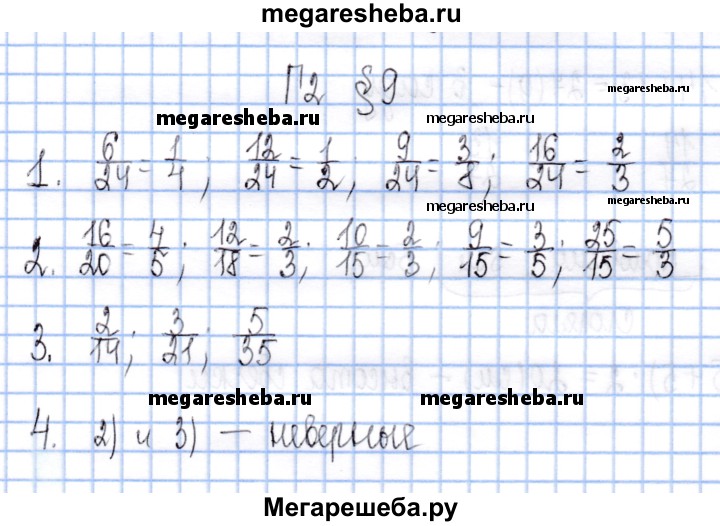 megaresheba.ru
Г2 §9
megaresheba.ru
megaresheba.ru megaresheba.ru
1. 6/24 = 1/4; 12/24 = 1/2, 9/24 = 3/8; 16/24 = 2/3
megaresheba.ru megaresheba.ru
2. 16/20 = 4/5; 12/18 = 2/3; 10/15 = 2/3; 9/15 = 3/5; 25/15 = 5/3
3. 2/14; 3/21; 5/35
megaresheba.ru megaresheba.ru
4. 2) и 3) — неверные
Мегарешеба.ру